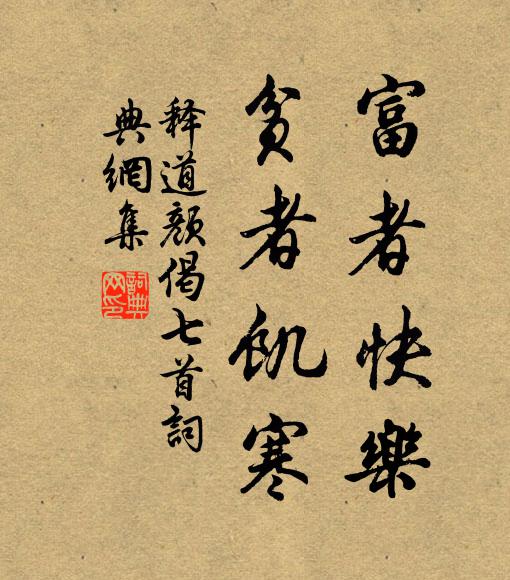 富者快樂
貧者飢寒
释道颜偈七首詞
典網集
詞典
网印